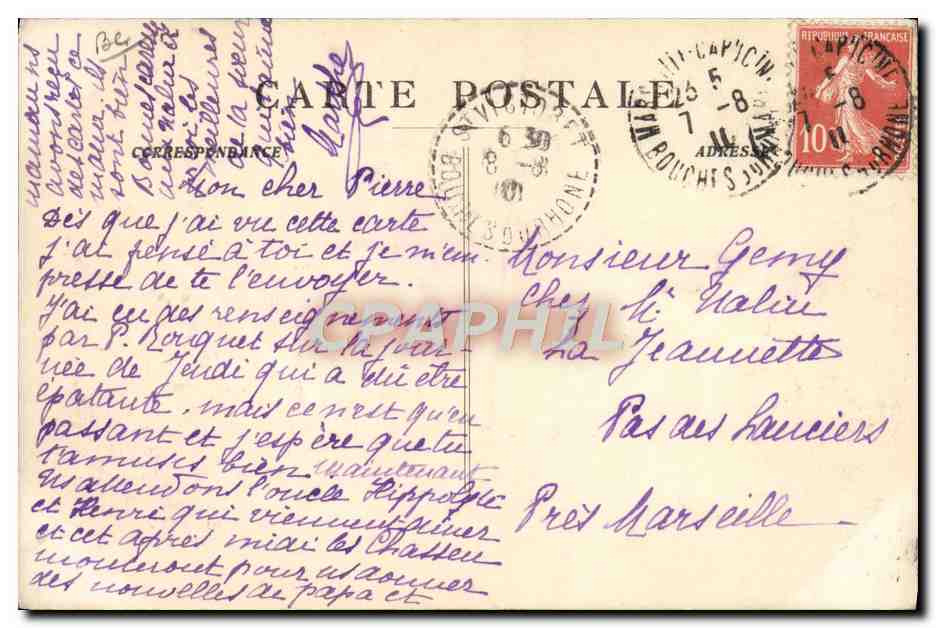 CARTE POSTALE
CORRESPONDANCE
ADRESSE
REPUBLIQUE FRANÇAISE
10
CPAPHIL
Mon cher Pierre
Dès que j'ai vu cette carte
j'ai pensé à toi et je m'em-
presse de te l'envoyer.
J'ai eu des renseignements
par P. Rouquet sur la jour-
née de Jeudi qui a dû être
épatante, mais ce n'est qu'en
passant et j'espère que tu
t'amuses bien maintenant
ns attendons l'oncle Hippolyte
et Henri qui viennent diner
et cet après midi les Chasseu
monteront pour ns donner
des nouvelles de papa et
maman ns
avons reçu
des cartes ce
matin ils
sont bien
meilleures
bien
Monsieur Gemy
chez Mr
La Jeannette
Pas des Lanciers
Près Marseille